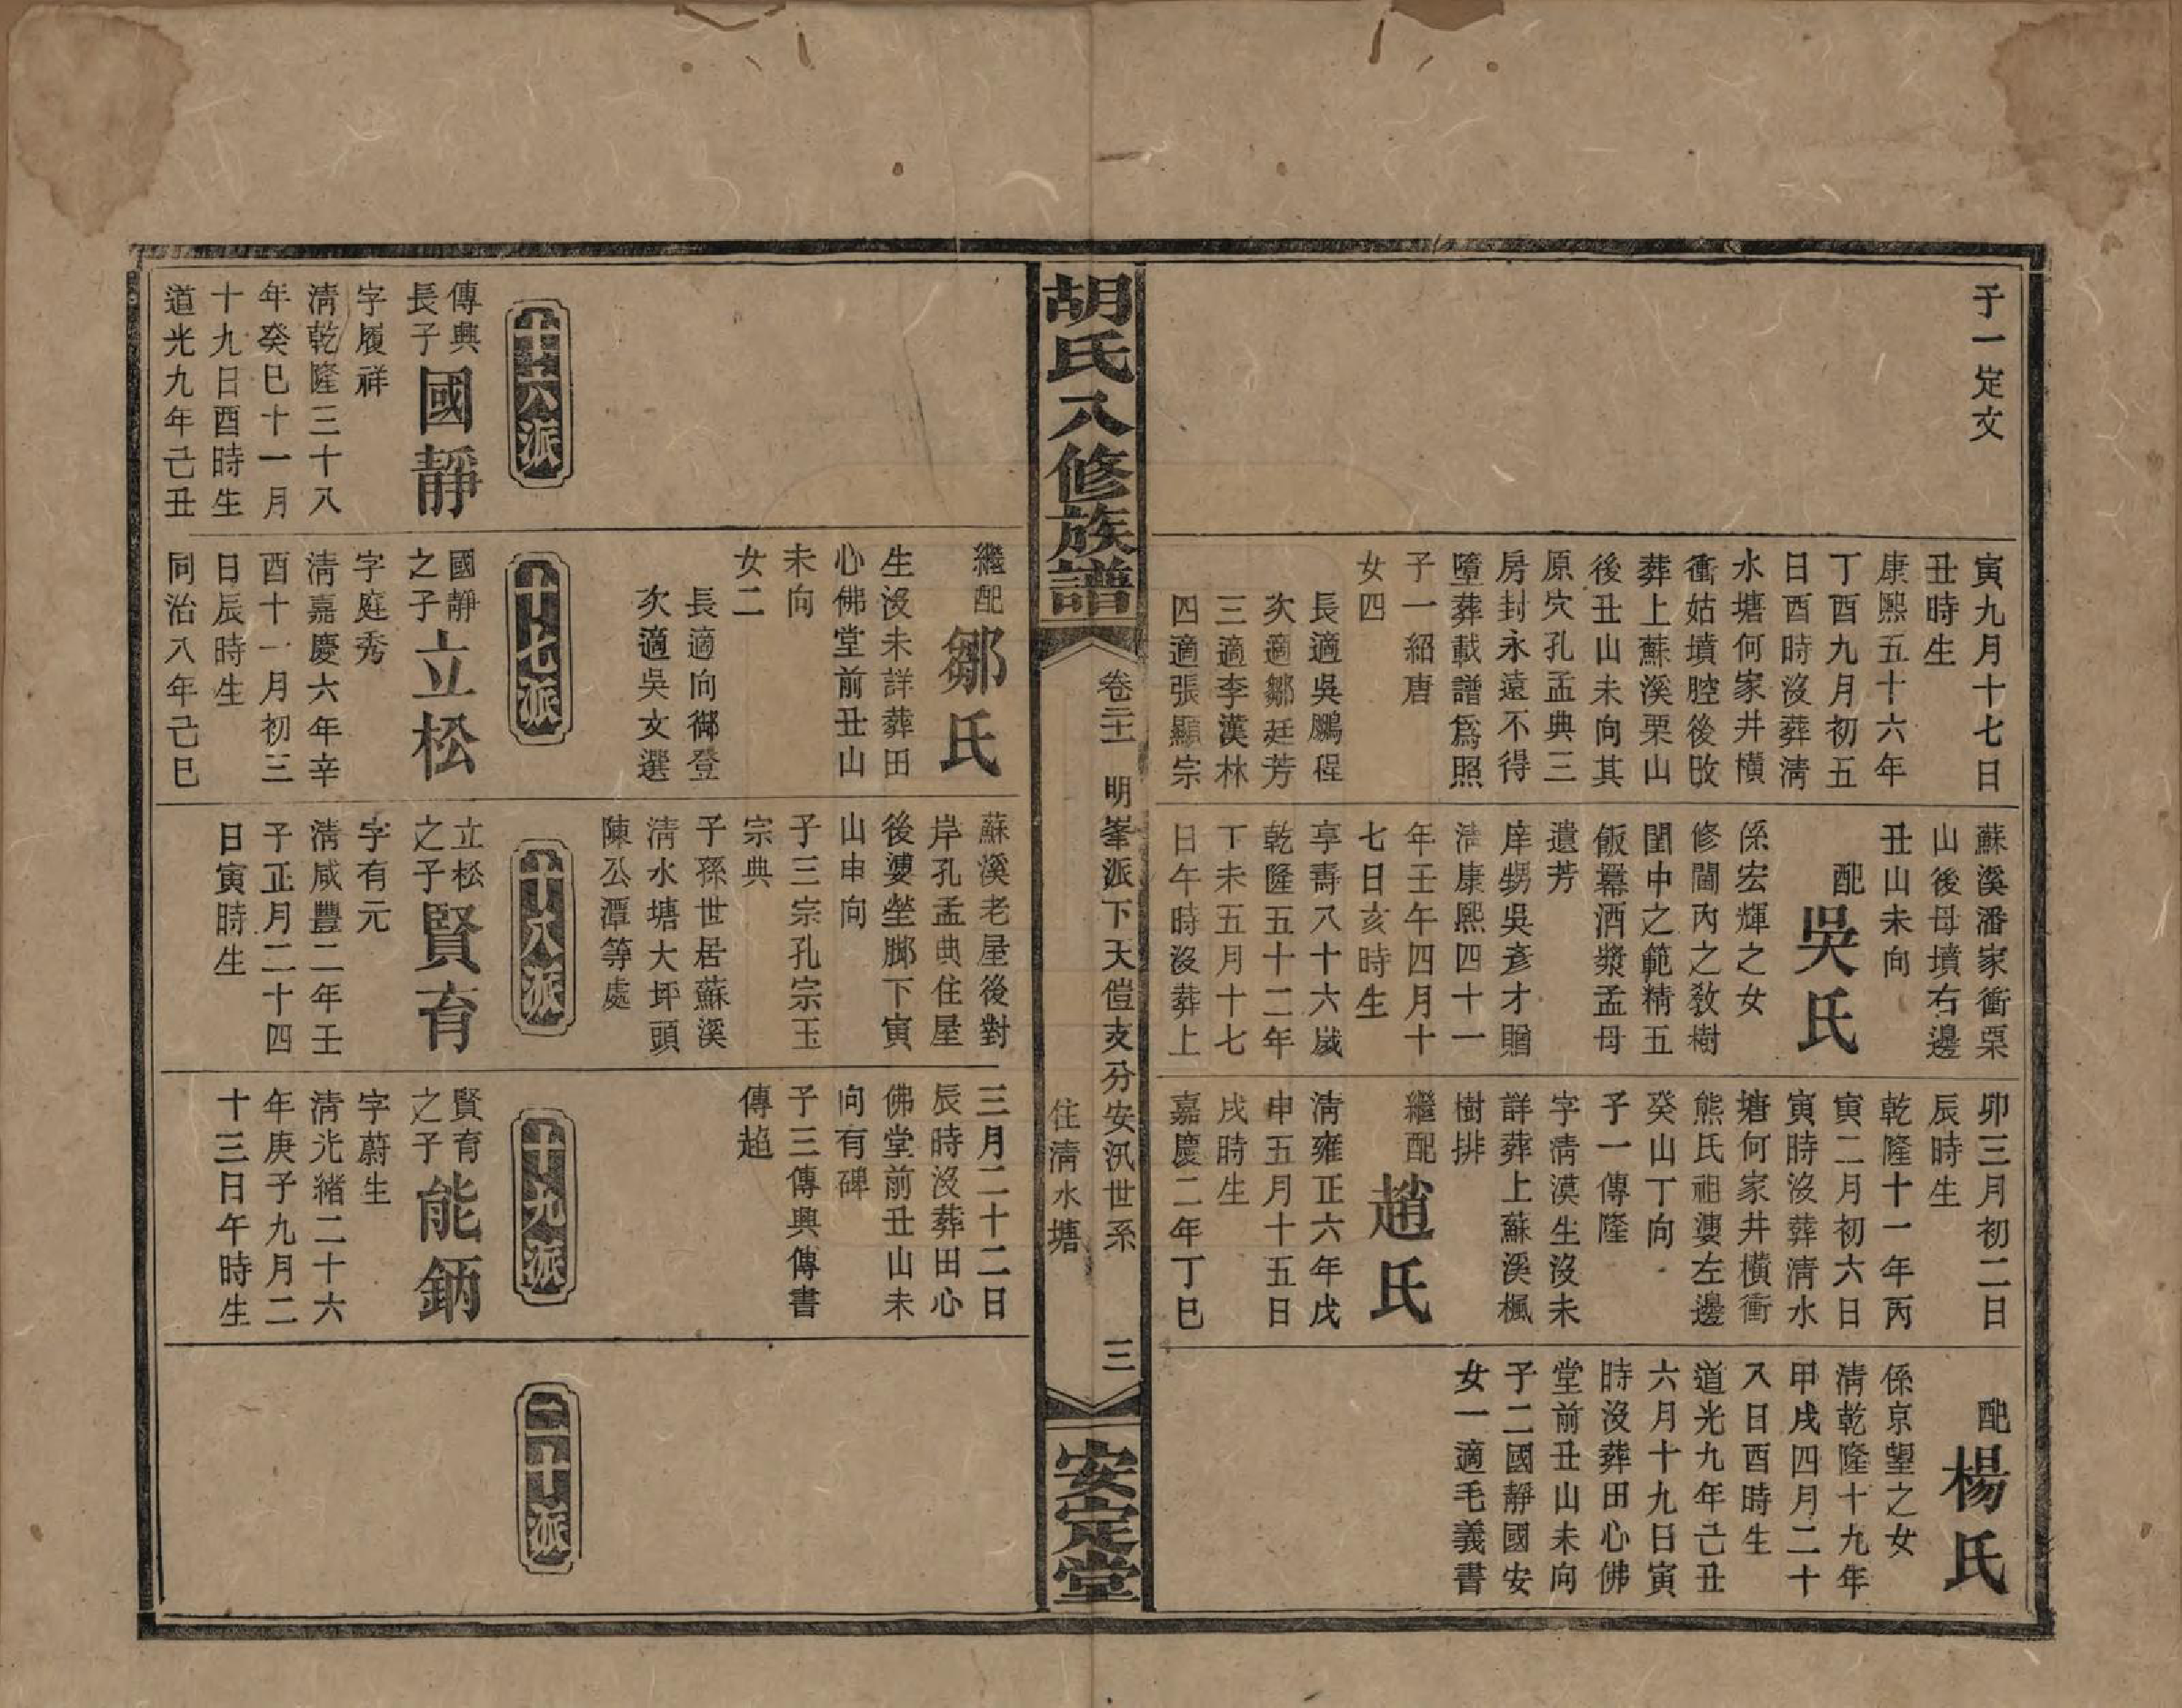 子一定文
寅九月十七日
丑時生
康熙五十六年
丁酉九月初五
日酉時沒葬清
水塘何家井橫
衝姑墳腔後改
葬上蘇溪栗山
後丑山未向其
原穴孔孟典三
房封永遠不得
墮葬載譜爲照
子一紹唐
女四
長適吳鵬程
次適鄒廷芳
三適李漢林
四適張顯宗
蘇溪潘家衝栗
山後母墳右邊
丑山未向
配吳氏
係宏輝之女
修閫內之教樹
閨中之範精五
飯羃酒漿孟母
遺芳
庠甥吳彥才贈
清康熙四十一
年壬午四月十
七日亥時生
享壽八十六歲
乾隆五十二年
丁未五月十七
日午時沒葬上
卯三月初二日
辰時生
乾隆十一年丙
寅二月初六日
寅時沒葬清水
塘何家井橫衝
熊氏祖塋左邊
癸山丁向
子一傳隆
字清漠生沒未
詳葬上蘇溪楓
樹排
繼配趙氏
清雍正六年戊
申五月十五日
戌時生
嘉慶二年丁巳
配楊氏
係京望之女
清乾隆十九年
甲戌四月二十
八日酉時生
道光九年己丑
六月十九日寅
時沒葬田心佛
堂前丑山未向
子二國靜國安
女一適毛義書
胡氏八修族譜
卷二十一
明峯派下天愷支分安汎世系
住清水塘
三
安定堂
繼配鄒氏
生沒未詳葬田
心佛堂前丑山
未向
女二
長適向鄉登
次適吳文選
蘇溪老屋後對
岸孔孟典住屋
後塋坐腳下寅
山申向
子三宗孔宗玉
宗典
子孫世居蘇溪
清水塘大坪頭
陳公潭等處
三月二十二日
辰時沒葬田心
佛堂前丑山未
向有碑
子三傳興傳書
傳趨
十六派
傳典長子國靜
字履祥
清乾隆三十八
年癸巳十一月
十九日酉時生
道光九年己丑
十七派
國靜之子立松
字庭秀
清嘉慶六年辛
酉十一月初三
日辰時生
同治八年己巳
十八派
立松之子賢育
字有元
清咸豐二年壬
子正月二十四
日寅時生
十九派
賢育之子能鈵
字蔚生
清光緒二十六
年庚子九月二
十三日午時生
二十派